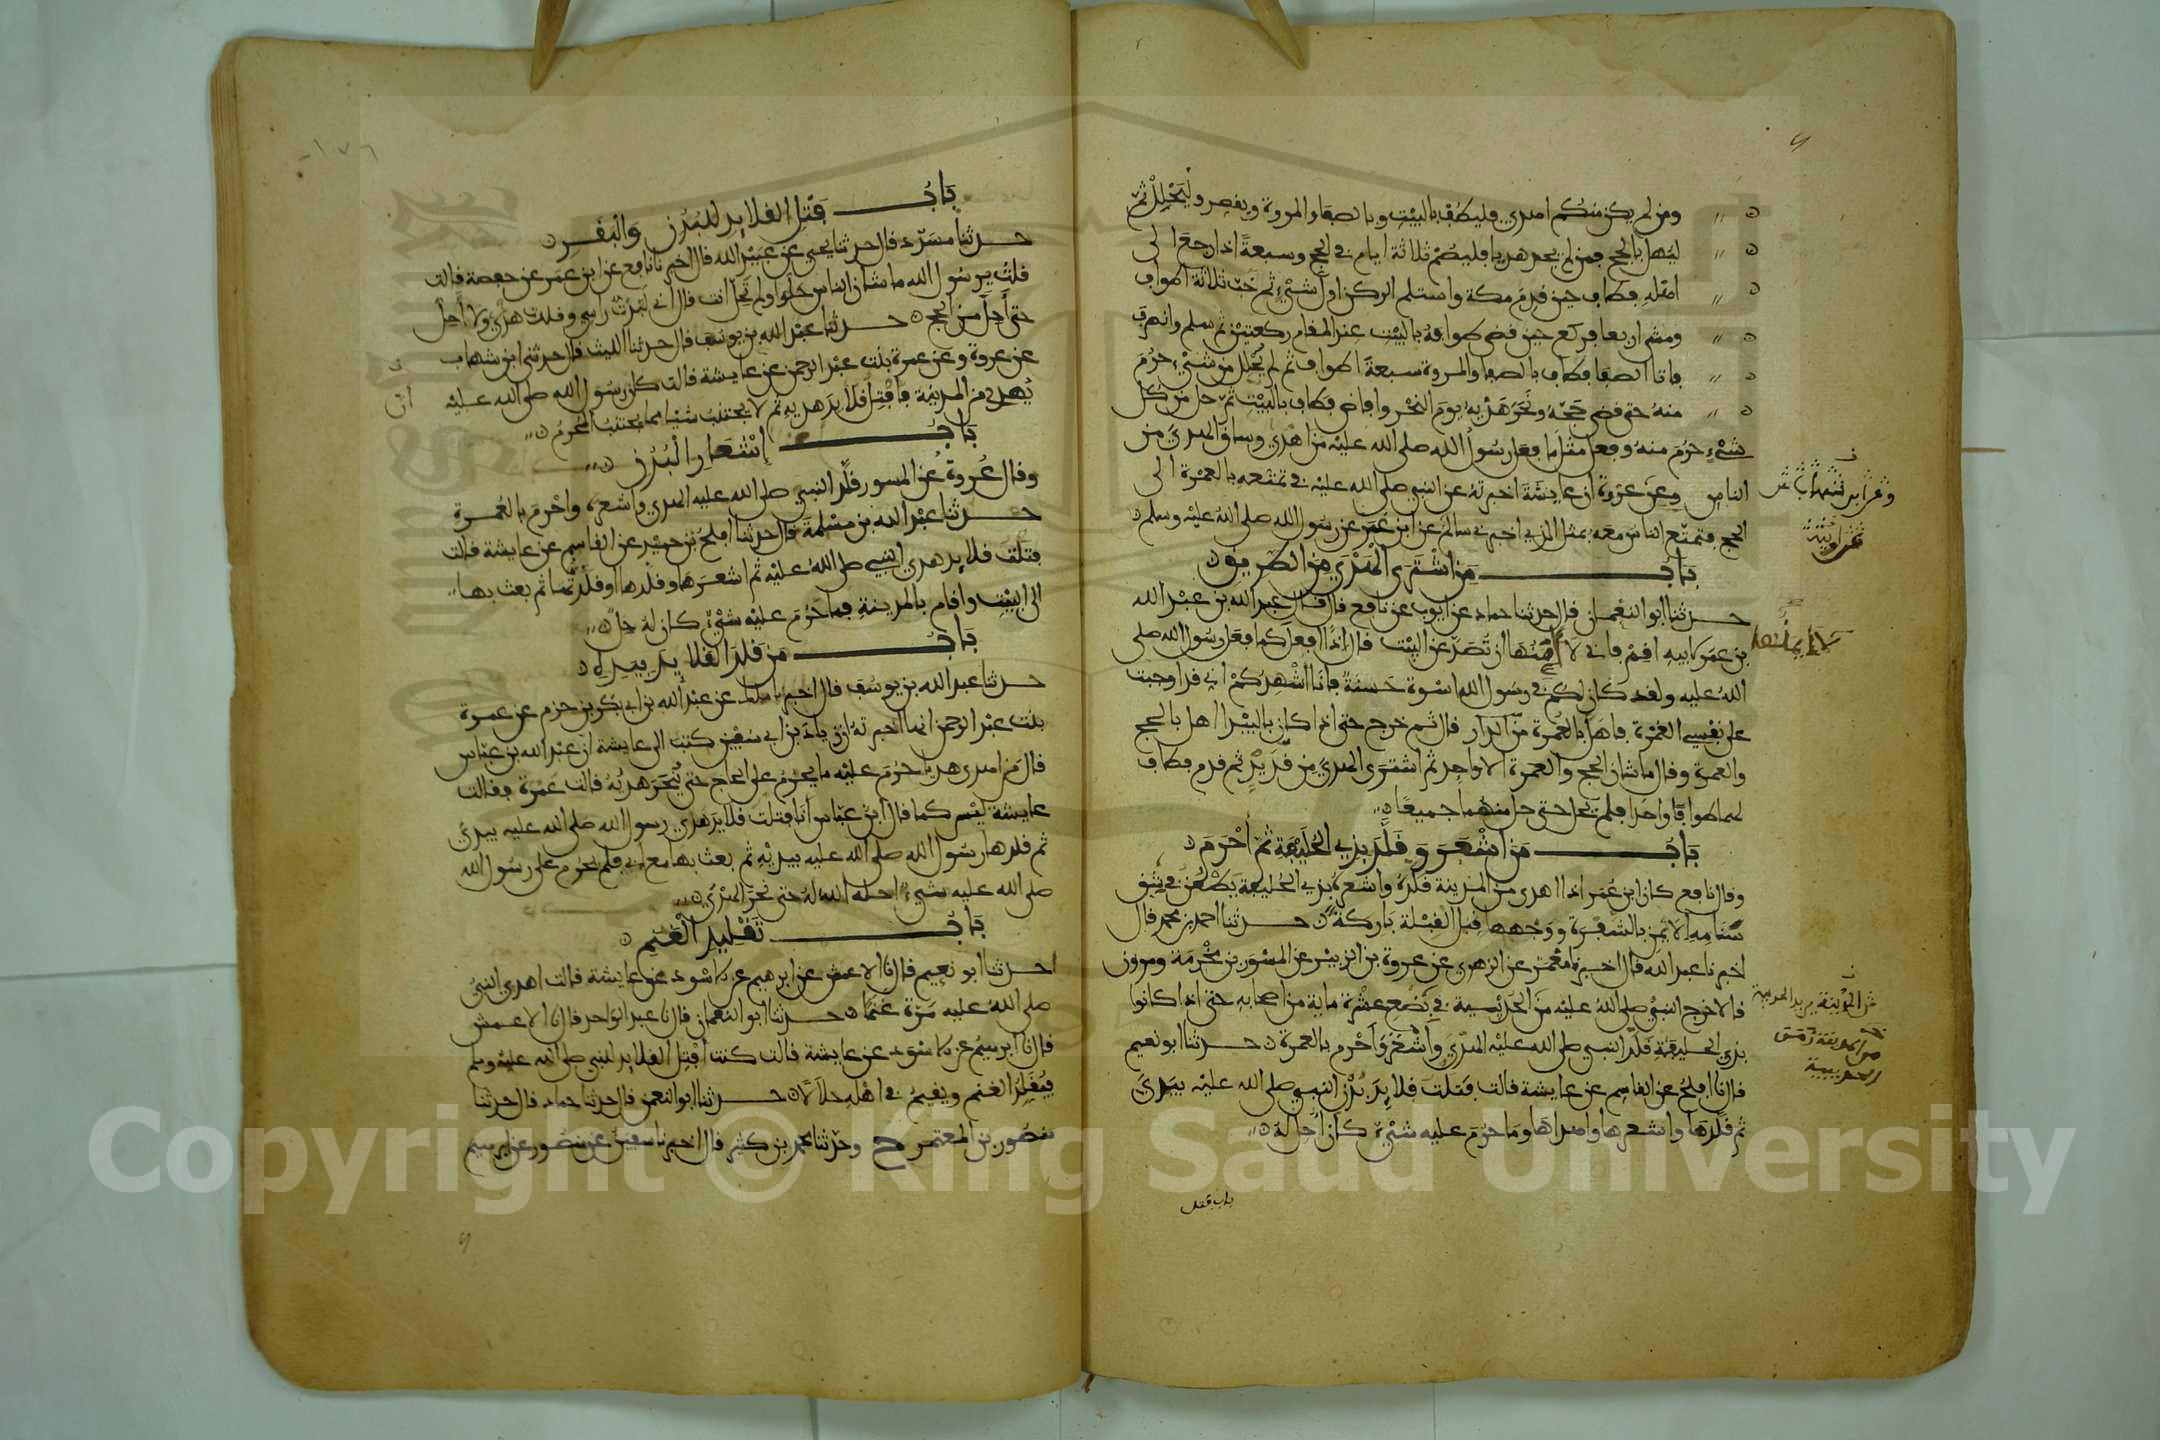 ومن لم يكن منكم اهدى فليطف بالبيت وبالصفا والمروة ويقصر وليحلل ثم
ليهل بالحج فمن لم يجد هديا فليصم ثلاثة ايام في الحج وسبعة اذا رجع الى
اهله فطاف حين قدم مكة واستلم الركن اول شيء ثم خب ثلاثة اطواف
ومشى اربعا فركع حين قضى طوافه بالبيت عند المقام ركعتين ثم سلم وانصرف
فاتا الصفا فطاف بالصفا والمروة سبعة اطواف ثم لم يحلل من شيء حرم
منه حتى قضى حجه ونحر هديه يوم النحر وافاض فطاف بالبيت ثم حل من كل
شيء حرم منه وفعل مثل ما فعل رسول الله صلى الله عليه من اهدى وساق الهدي من
الناس وعن عروة ان عايشة اخبرته عن النبي صلى الله عليه في تمتعه بالعمرة الى
الحج فتمتع الناس معه بمثل الذي اخبرني سالم عن ابن عمر عن رسول الله صلى الله عليه وسلم
باب من اشترى الهدي من الطريق
حدثنا ابو النعمان قال حدثنا حماد عن ايوب عن نافع قال قال عبد الله بن عبد الله
بن عمر لابيه اقم فاني لا امنها ان تصد عن البيت قال اذا افعل كما فعل رسول الله صلى
الله عليه ولقد كان لكم في رسول الله اسوة حسنة فانا اشهدكم اني قد اوجبت
على نفسي العمرة فاهل بالعمرة من الدار قال ثم خرج حتى اذا كان بالبيدا اهل بالحج
والعمرة وقال ما شان الحج والعمرة الا واحد ثم اشترى الهدي من قديد ثم قدم فطاف
لهما طوافا واحدا فلم يحل حتى حل منهما جميعا
باب من اشعر وقلد بذي الحليفة ثم احرم
وقال نافع كان ابن عمر اذا اهدى من المدينة قلده واشعره بذي الحليفة يطعن في شق
سنامه الايمن بالشفرة ووجهها قبل القبلة باركة حدثنا احمد بن محمد قال
اخبرنا عبد الله قال اخبرنا معمر عن الزهري عن عروة بن الزبير عن المسور بن مخرمة ومروان
قالا خرج النبي صلى الله عليه من الحديبية في بضع عشرة ماية من اصحابه حتى اذا كانوا
بذي الحليفة قلد النبي صلى الله عليه الهدي واشعر واحرم بالعمرة حدثنا ابو نعيم
قال نا افلح عن القاسم عن عايشة قالت فتلت قلايد بدن النبي صلى الله عليه بيدي
ثم قلدها واشعرها واهداها وما حرم عليه شيء كان احل له
باب فتل
باب فتل القلايد للبدن والبقر
حدثنا مسدد قال حدثنا يحيى عن عبيد الله قال اخبرنا نافع عن ابن عمر عن حفصة قالت
قلت يرسول الله ما شان الناس حلوا ولم تحل انت قال اني لبدت راسي وقلدت هديي ولا احل
حتى احل من الحج حدثنا عبد الله بن يوسف قال حدثنا الليث قال حدثني ابن شهاب
عن عروة وعن عمرة بنت عبد الرحمن عن عايشة قالت كان رسول الله صلى الله عليه
يهدي من المدينة فافتل قلايد هديه ثم لا يجتنب شيا مما يجتنب المحرم
باب اشعار البدن
وقال عروة عن المسور قلد النبي صلى الله عليه الهدي واشعره واحرم بالعمرة
حدثنا عبد الله بن مسلمة قال حدثنا افلح بن حميد عن القاسم عن عايشة قالت
فتلت قلايد هدي النبي صلى الله عليه ثم اشعرها وقلدها او قلدتها ثم بعث بها
الى البيت واقام بالمدينة فما حرم عليه شيء كان له حل
باب من قلد القلايد بيده
حدثنا عبد الله بن يوسف قال اخبرنا ملك عن عبد الله بن ابي بكر بن حزم عن عمرة
بنت عبد الرحمن انها اخبرته ان زياد بن ابي سفين كتب الى عايشة ان عبد الله بن عباس
قال من اهدى هديا حرم عليه ما يحرم على الحاج حتى ينحر هديه قالت عمرة فقالت
عايشة ليس كما قال ابن عباس انا فتلت قلايد هدي رسول الله صلى الله عليه بيدي
ثم قلدها رسول الله صلى الله عليه بيديه ثم بعث بها مع ابي فلم يحرم على رسول الله
صلى الله عليه شيء احله الله له حتى نحر الهدي
باب تقليد الغنم
حدثنا ابو نعيم قال نا الاعمش عن ابرهيم عن الاسود عن عايشة قالت اهدى النبي
صلى الله عليه مرة غنما حدثنا ابو النعمان قال نا عبد الواحد قال نا الاعمش
قال نا ابرهيم عن الاسود عن عايشة قالت كنت افتل القلايد للنبي صلى الله عليه وسلم
فيقلد الغنم ويقيم في اهله حلالا حدثنا ابو النعمن قال حدثنا حماد قال حدثنا
منصور بن المعتمر ح وحدثنا محمد بن كثير قال اخبرنا سفين عن منصور عن ابرهيم
Copyright © King Saud University